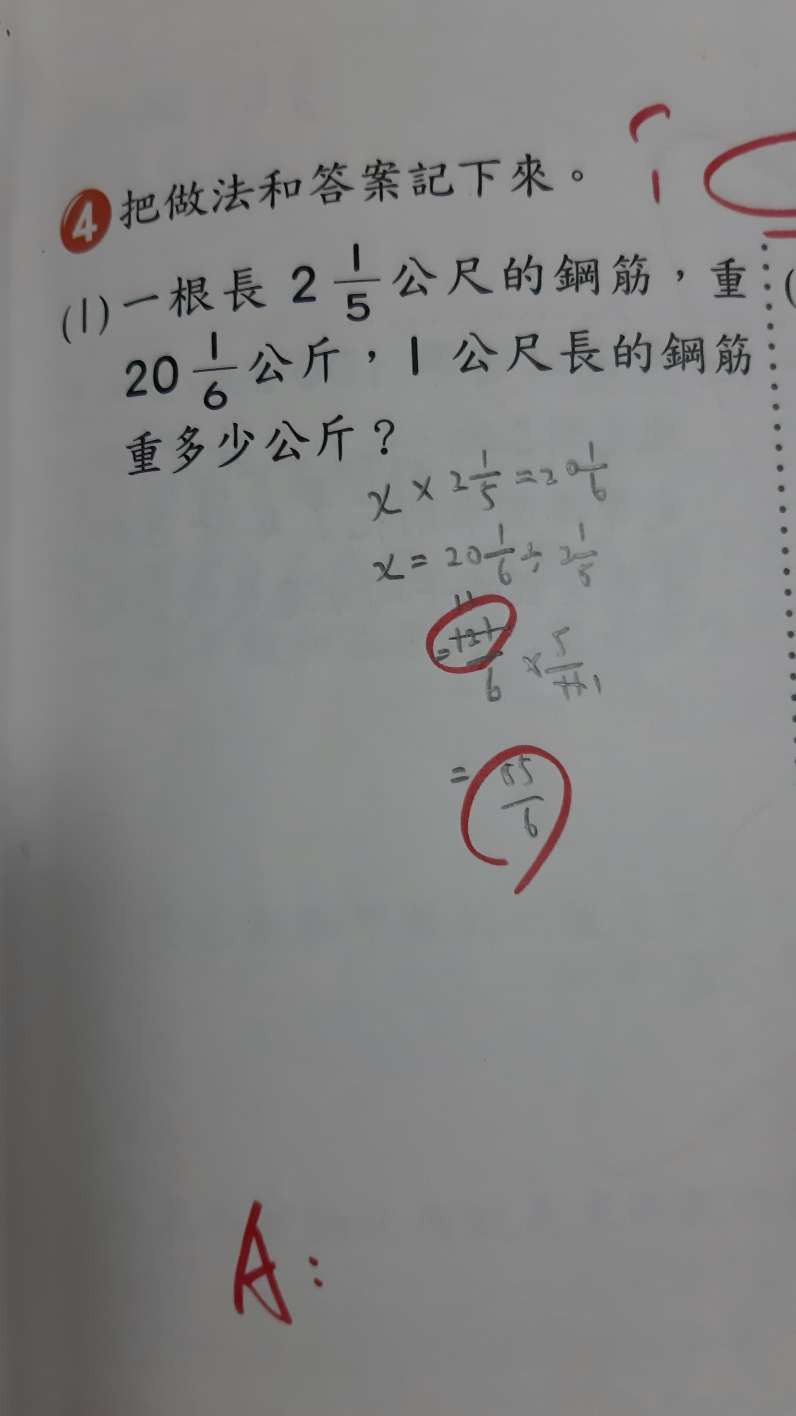 4 把做法和答案記下來。
(1) 一根長 2 1/5 公尺的鋼筋，重
20 1/6 公斤，1 公尺長的鋼筋
重多少公斤？
x × 2 1/5 = 20 1/6
x = 20 1/6 ÷ 2 1/5
11
= 121/6 × 5/11 1
= 55/6
A：